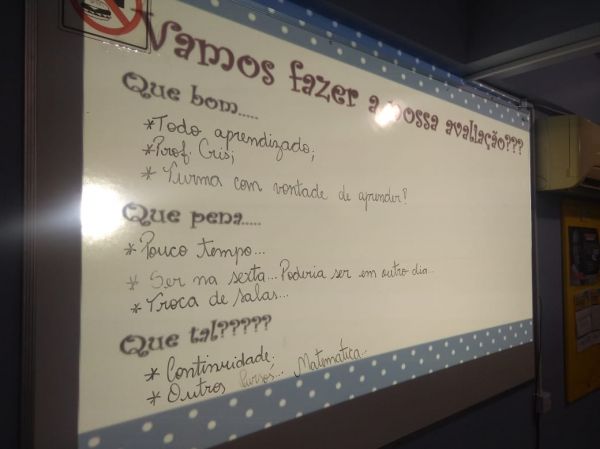 Vamos fazer a nossa avaliação???
Que bom.....
*Todo aprendizado;
*Prof. Cris;
* Turma com vontade de aprender!
Que pena.....
* Pouco tempo...
* Ser na sexta... Poderia ser em outro dia...
* Troca de salas...
Que tal?????
* Continuidade.
* Outros cursos... Matemática...